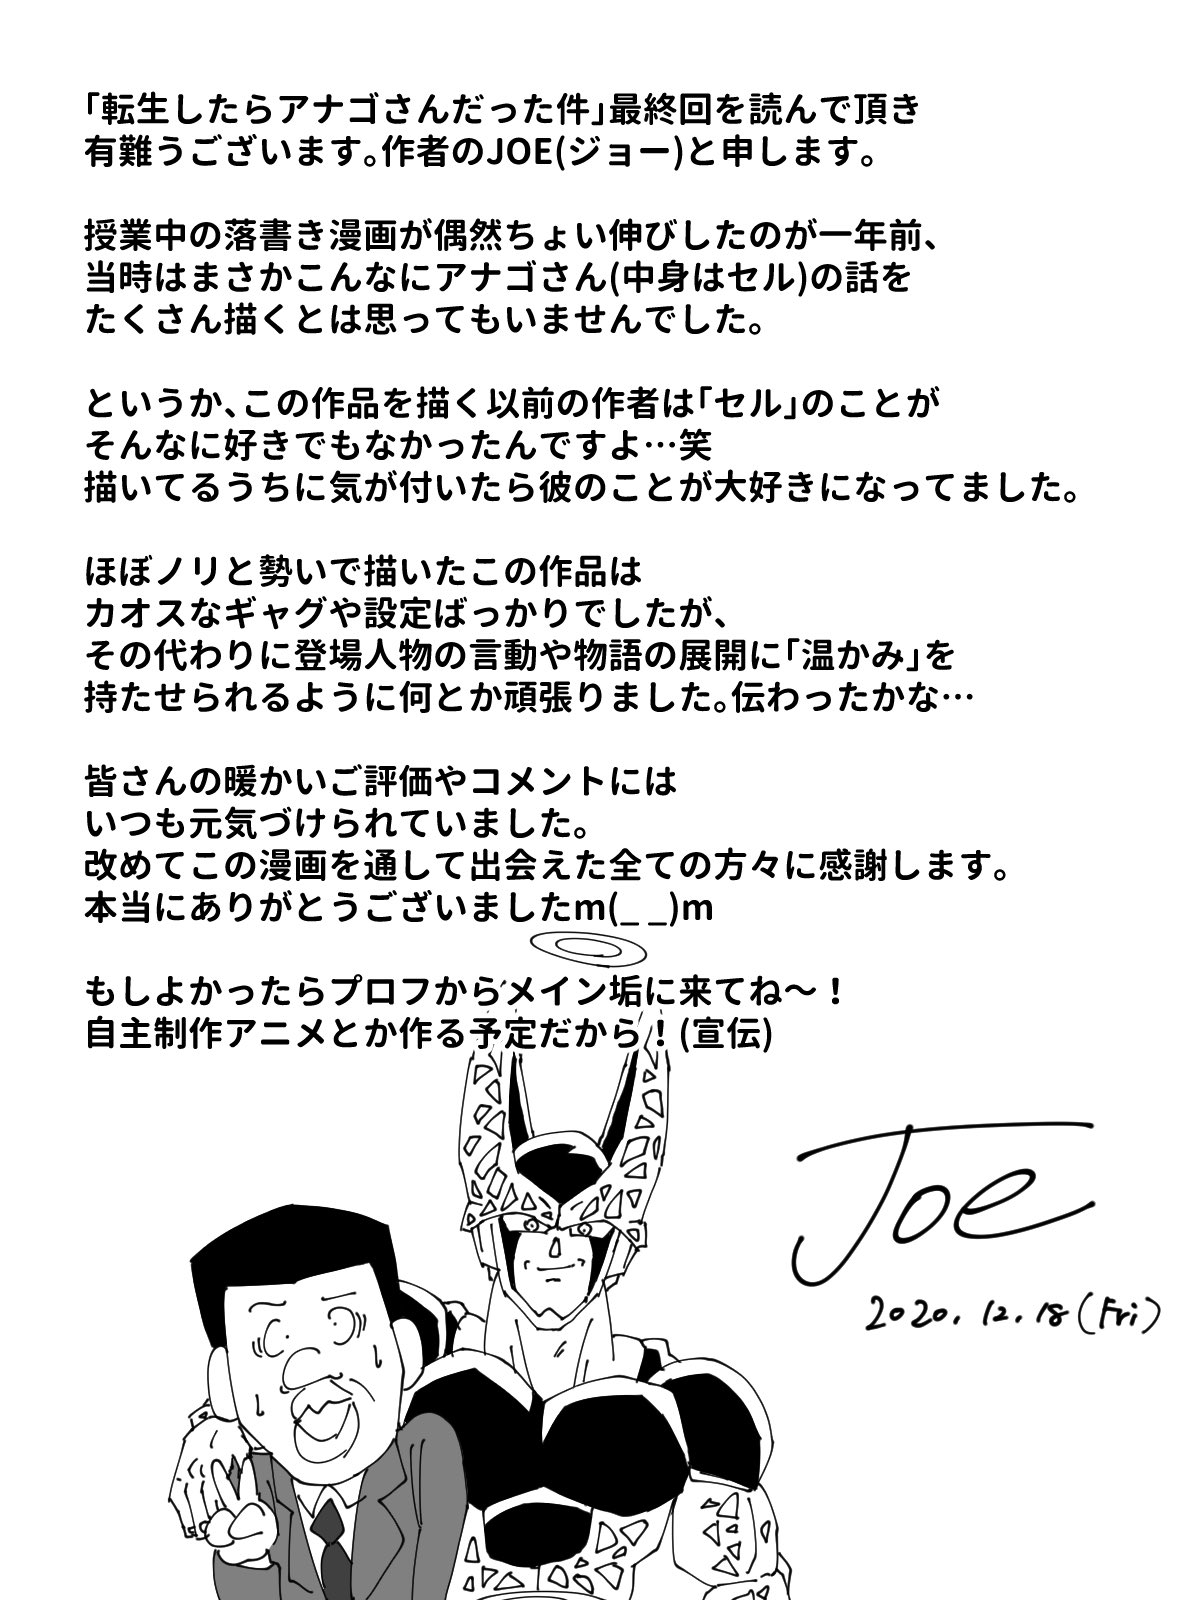 「転生したらアナゴさんだった件」最終回を読んで頂き
有難うございます。作者のJOE(ジョー)と申します。
授業中の落書き漫画が偶然ちょい伸びしたのが一年前、
当時はまさかこんなにアナゴさん(中身はセル)の話を
たくさん描くとは思ってもいませんでした。
というか、この作品を描く以前の作者は「セル」のことが
そんなに好きでもなかったんですよ…笑
描いてるうちに気が付いたら彼のことが大好きになってました。
ほぼノリと勢いで描いたこの作品は
カオスなギャグや設定ばっかりでしたが、
その代わりに登場人物の言動や物語の展開に「温かみ」を
持たせられるように何とか頑張りました。伝わったかな…
皆さんの暖かいご評価やコメントには
いつも元気づけられていました。
改めてこの漫画を通して出会えた全ての方々に感謝します。
本当にありがとうございましたm(_ _)m
もしよかったらプロフからメイン垢に来てね〜！
自主制作アニメとか作る予定だから！(宣伝)
Joe
2020.12.18(Fri)